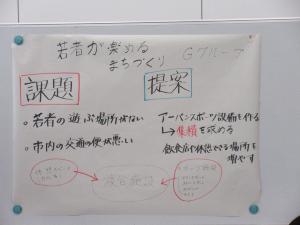 若者が楽める
まちづくり Gグループ
課題
・若者の遊ぶ場所がない
・市内の交通の便が悪い
提案
アーバンスポーツ設備を作る
↳集積を求める
飲食店や休憩できる場所を
増やす
複合施設